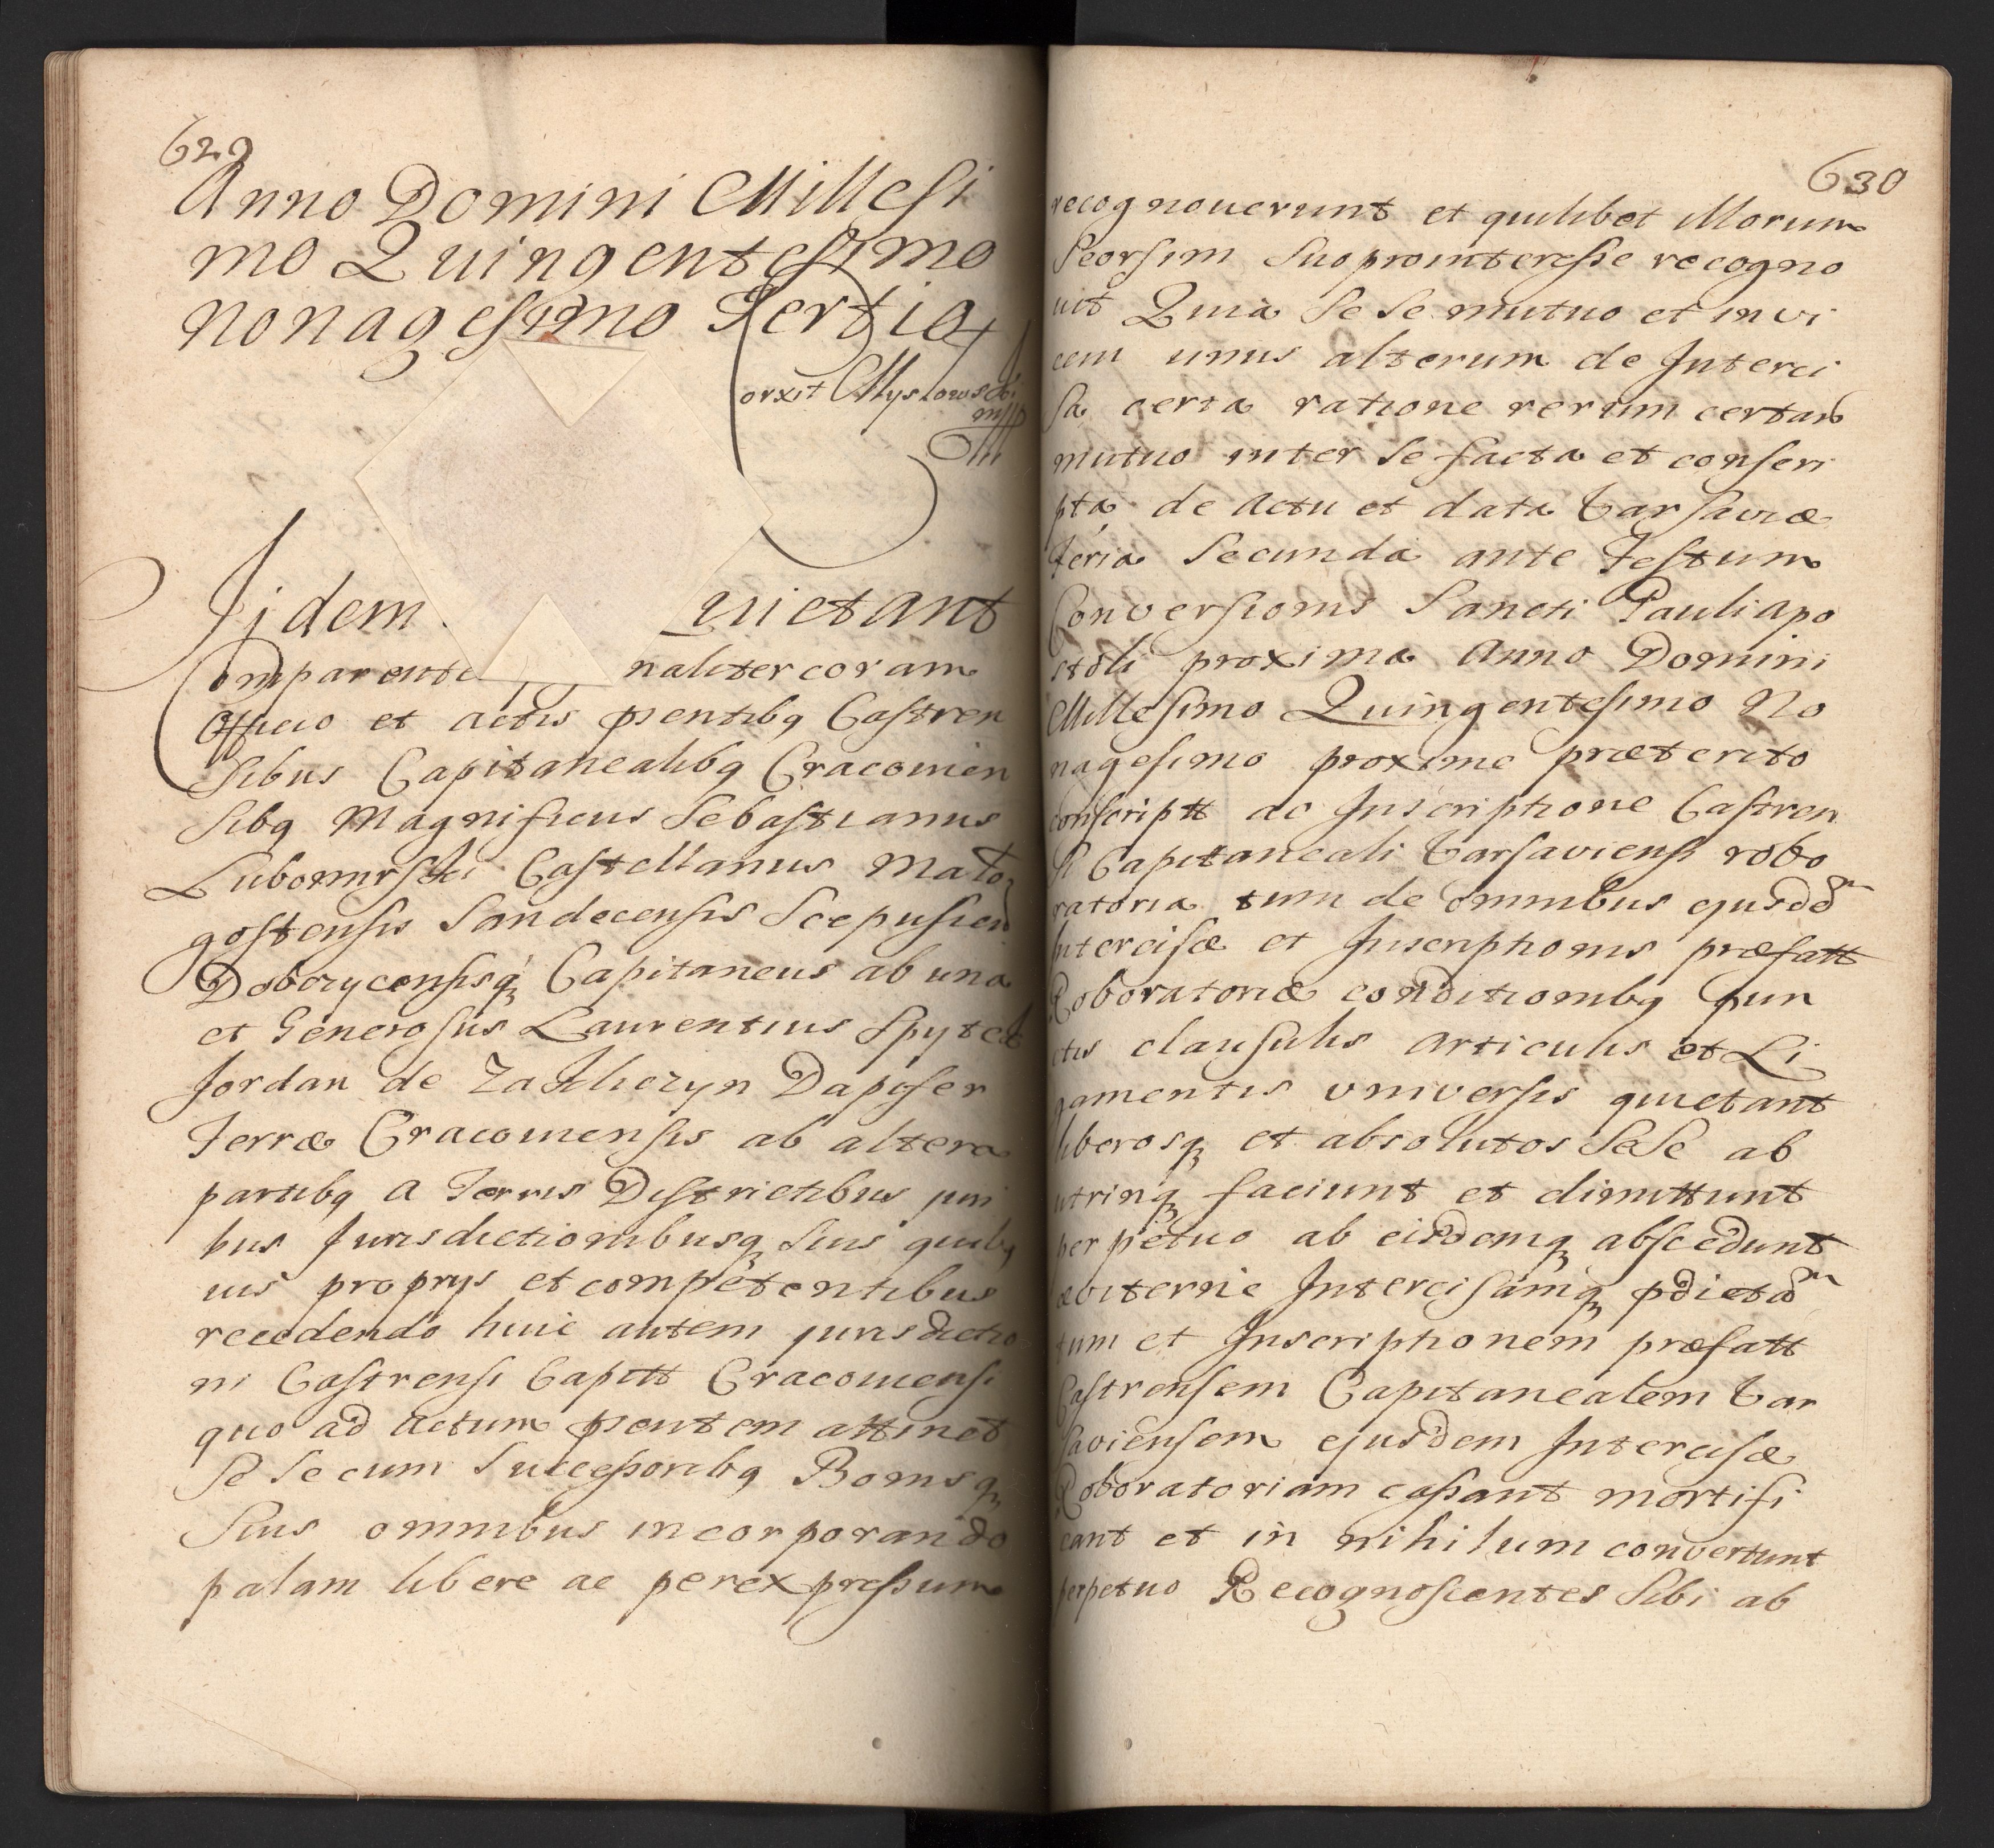 629
Anno Domini Millesi
mo Quingentesimo
nonagesimo Tertio
orxit Myslowski
mpp
Jidem Quietant
Comparente naliter coram
Officio et actis pñentibq Castren
sibus Capitanealibq Cracouien
sibq Magnificus Sebastianus
Lubomirski Castellanus Mało
gostensis Sandecensis Scepusien
Dobczycensisq Capitaneus ab una
et Generosus Laurentius Spytek
Jordan de Zakliczyn Dapifer
Terræ Cracouiensis ab altera
partibq a Terris Districtibus juri
bus Jurisdictionibusq suis quibq
uis proprijs et competentibus
recedendo huic autem jurisdictio
ni Castrensi Capitt Cracouiensi
quo ad actum pñentem attinet
se se cum Successoribq Bonisq
suis omnibus incorporando
palam libere ac per expressum
630
recognouerunt et quilibet illorum
seorsim suo prointeresse recogno
uit Quia se se mutuo et invi
cem unus alterum de Interci
sa certa ratione rerum certar
mutuo inter se facta et conscri
pta de actu et data Varsaviæ
feria secunda ante Festum
Conversionis Sancti Pauli apo
stoli proxima Anno Domini
Millesimo Quingentesimo No
nagesimo proxime præterito
conscriptt ac Inscriptione Castren
si Capitaneali Varsaviensi robo
ratoria tum de omnibus ejusdem
Intercisæ et Inscriptionis præfatt
Roboratoriæ conditionibq pun
ctis clausulis articulis et Li
gamentis vniversis quietant
liberosq et absolutos sese ab
utrinq faciunt et dimittunt
perpetuo ab eisdemq abscedunt
æviterne Intercisamq pdictam
tum et Inscriptionem præfatt
Castrensem Capitanealem Var
saviensem ejusdem Intercisæ
Roboratoriam cassant mortifi
cant et in nihilum convertunt
perpetuo Recognoscentes sibi ab